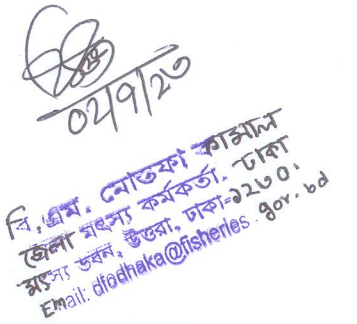 ০২/৭/২৩
বি.এম. মোস্তফা কামাল
জেলা মৎস্য কর্মকর্তা. ঢাকা
মৎস্য ভবন, উত্তরা, ঢাকা-১২৩০।
Email: dfodhaka@fisheries.gov.bd